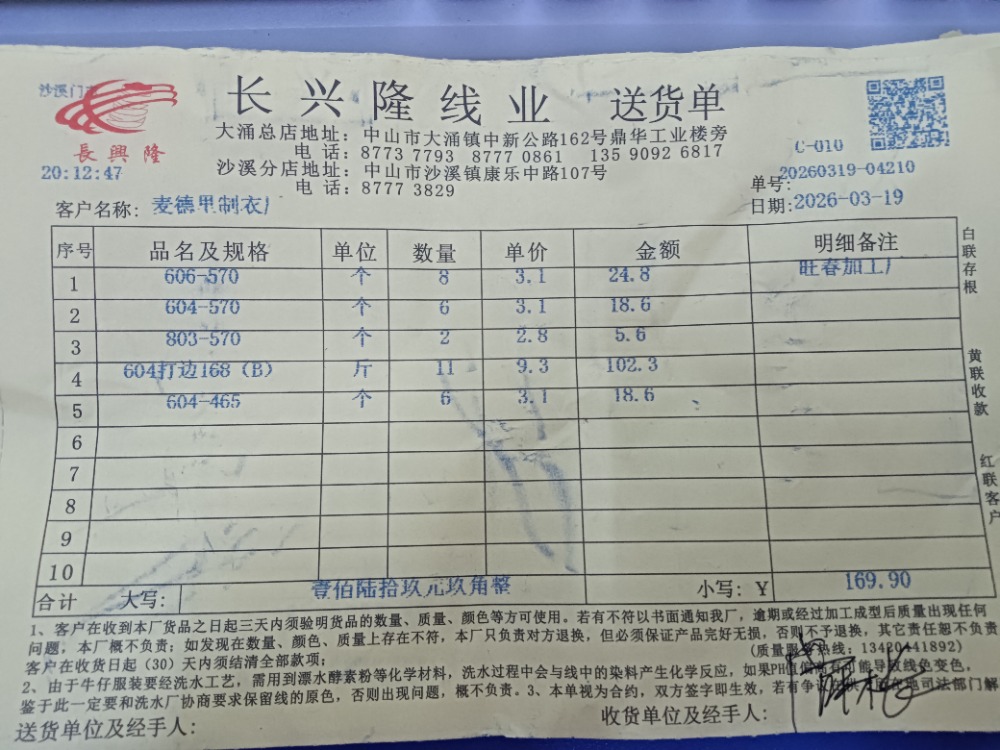 沙溪门市
長興隆
20:12:47
长兴隆线业 送货单
大涌总店地址：中山市大涌镇中新公路162号鼎华工业楼旁
电话：8773 7793 8777 0861 135 9092 6817
沙溪分店地址：中山市沙溪镇康乐中路107号
电话：8777 3829
C-010
单号：20260319-04210
客户名称：麦德里制衣厂
日期：2026-03-19
序号 品名及规格 单位 数量 单价 金额 明细备注
1 606-570 个 8 3.1 24.8 旺春加工厂
2 604-570 个 6 3.1 18.6
3 803-570 个 2 2.8 5.6
4 604打边168（B） 斤 11 9.3 102.3
5 604-465 个 6 3.1 18.6
6
7
8
9
10
合计 大写： 壹佰陆拾玖元玖角整 小写：￥ 169.90
白联存根
黄联收款
红联客户
1、客户在收到本厂货品之日起三天内须验明货品的数量、质量、颜色等方可使用。若有不符以书面通知我厂，逾期或经过加工成型后质量出现任何
问题，本厂概不负责；如发现在数量、颜色、质量上存在不符，本厂只负责对方退换，但必须保证产品完好无损，否则不予退换，其它责任恕不负责
客户在收货日起（30）天内须结清全部款项；
(质量服务热线：13420441892)
2、由于牛仔服装要经洗水工艺，需用到漂水酵素粉等化学材料，洗水过程中会与线中的染料产生化学反应，如果PH值偏 能导致线色变色，
鉴于此一定要和洗水厂协商要求保留线的原色，否则出现问题，概不负责。3、本单视为合约，双方签字即生效，若有争议 地司法部门解
送货单位及经手人：
收货单位及经手人：